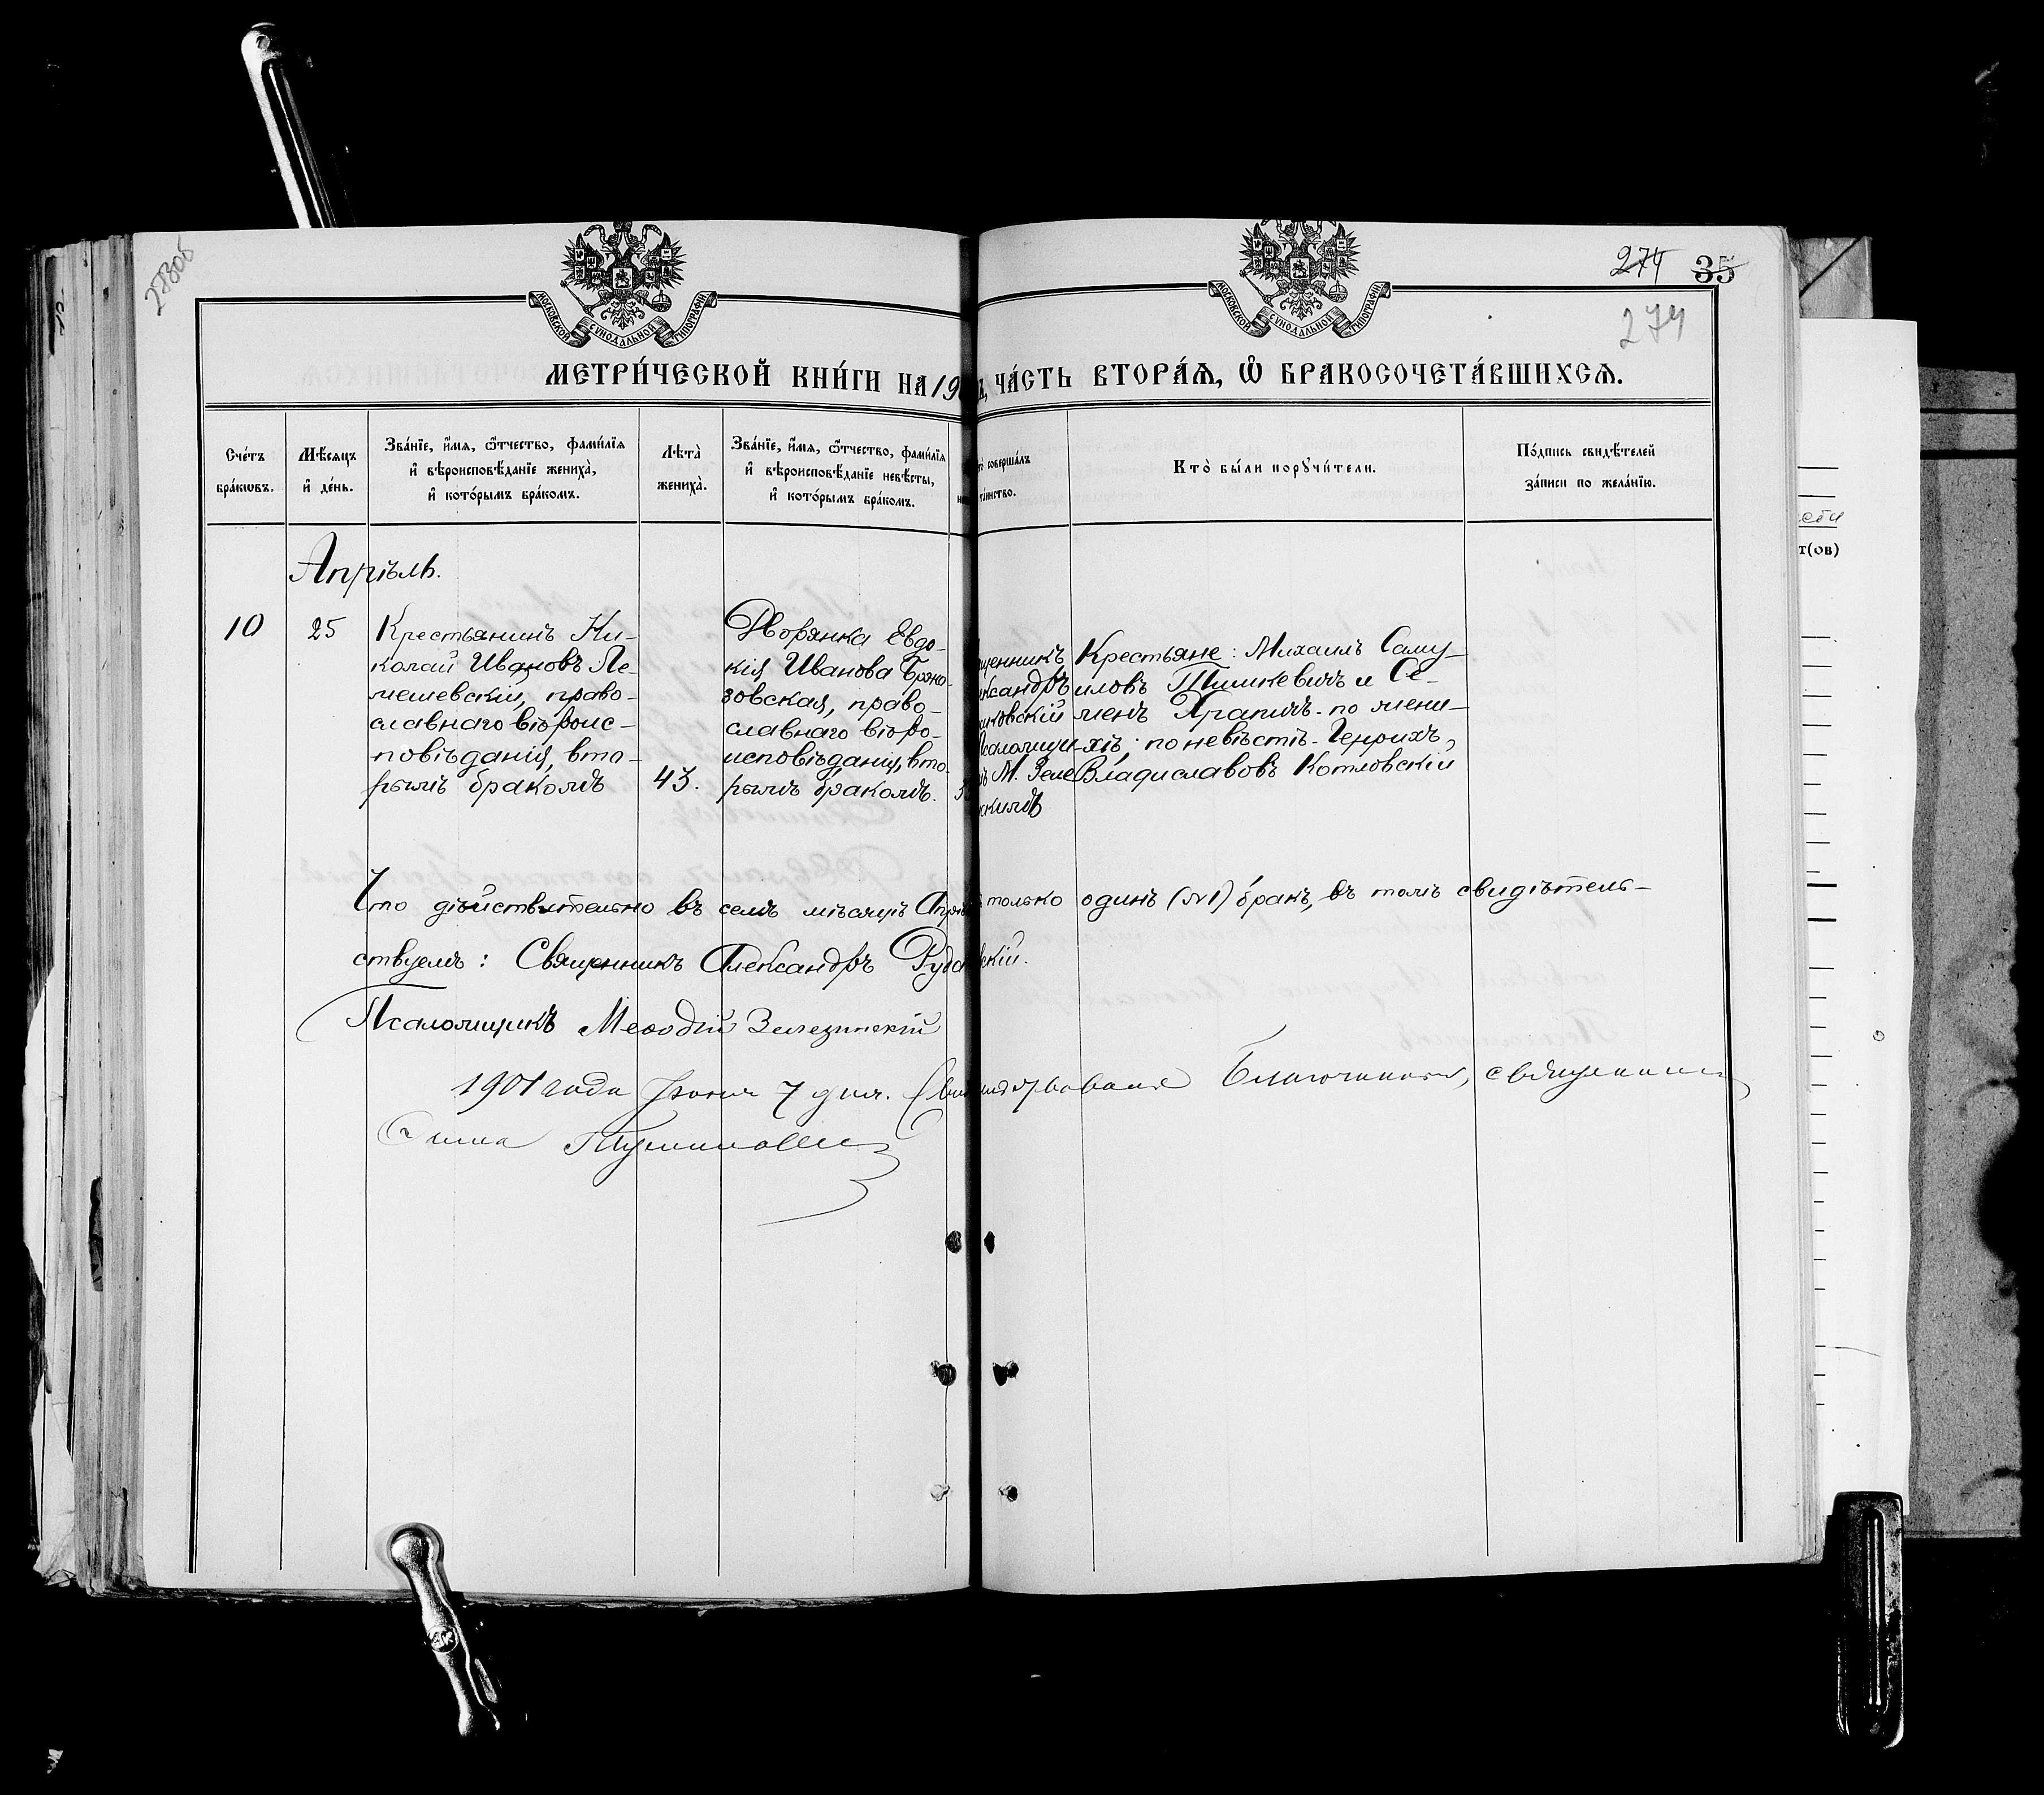 274 35
274
МОСКОВСКОЙ СУНОДАЛЬНОЙ ТИПОГРАФІИ
МОСКОВСКОЙ СУНОДАЛЬНОЙ ТИПОГРАФІИ
МЕТРИ́ЧЕСКОЙ КНИ́ГИ НА 19
ЧА́СТЬ ВТОРА́Я, Ѡ҆ БРАКОСОЧЕТА́ВШИХСЯ.
Сче́тъ бра́кѡвъ.
Мѣ́сяцъ и҆ де́нь.
Зва́нїе, и҆́мя, ѻ҆́тчество, фами́лїя и҆ вѣроисповѣ́данїе жениха̀, и҆ кото́рымъ бра́комъ.
Лѣ́та̀ жениха̀.
Зва́нїе, и҆́мя, ѻ҆́тчество, фами́лїя и҆ вѣроисповѣ́данїе невѣ́сты, и҆ кото́рымъ бра́комъ.
соверша́лъ
та́инство.
Кто̀ бы́ли порꙋчи́тели.
По́дпись свидѣ́телей за́писи по жела́нїю.
Апрѣль.
10
25
Крестьянинъ Ни-
колай Ивановъ Ле-
мешевскій, право-
славнаго вѣроис-
повѣданія, вто-
рымъ бракомъ
43.
Дворянка Евдо-
кія Иванова
зовская, право-
славнаго вѣро-
исповѣданія, вто-
рымъ бракомъ.
щенникъ
ксандръ
ковскій
псаломщи-
М. Зеле
скимъ
Крестьяне: Михаилъ Саму-
иловъ Тишкевичъ и Се-
менъ Храпичъ - по жени-
хѣ; по невѣстѣ - Генрихъ
Владиславовъ Котловскій
Что дѣйствительно въ семъ мѣсяцѣ Апрѣлѣ только одинъ (№1) бракъ, въ томъ свидѣтель-
ствуемъ: Священникъ Александръ
Псаломщикъ Меѳодій Зелезинскій
1901 года Іюня 7 дня. Свидѣтельствовалъ Благочинный, священникъ
т(ов)